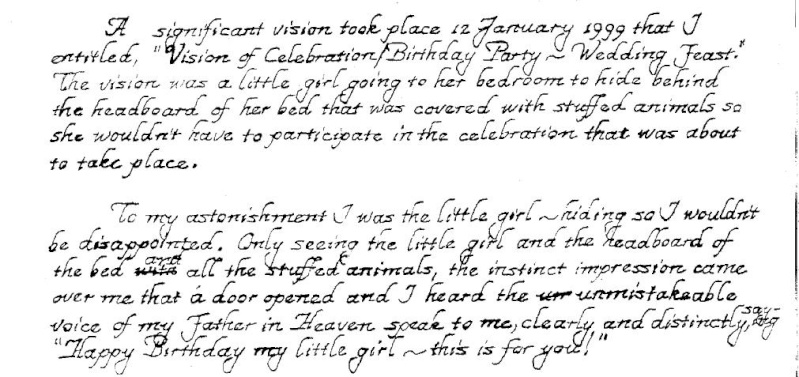 A significant vision took place 12 January 1999 that I
entitled, "Vision of Celebration/Birthday Party ~ Wedding Feast."
The vision was a little girl going to her bedroom to hide behind
the headboard of her bed that was covered with stuffed animals so
she wouldn't have to participate in the celebration that was about
to take place.
To my astonishment I was the little girl ~ hiding so I wouldn't
be disappointed. Only seeing the little girl and the headboard of
the bed and all the stuffed animals, the instinct impression came
over me that a door opened and I heard the unmistakeable
voice of my Father in Heaven speak to me, clearly and distinctly, saying
"Happy Birthday my little girl ~ this is for you!"